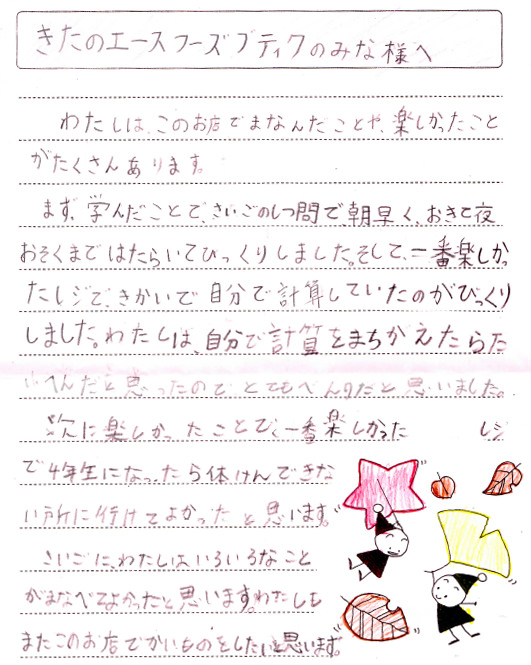 きたのエースフーズブティクのみな様へ
わたしは、このお店でまなんだことや、楽しかったこと
がたくさんあります。
まず、学んだことで、さいごのしつ問で、朝早く、おきて夜
おそくまではたらいてびっくりしました。そして、一番楽しかっ
たレジで、きかいで自分で計算していたのがびっくり
しました。わたしは、自分で計算をまちがえたらた
いへんだと思ったのでとてもべんりだと思いました。
次に楽しかったことで、一番楽しかった レジ
で4年生になったら体けんできな
い所に行けてよかったと思います。
さいごに、わたしはいろいろなこと
がまなべてよかったと思います。わたしも
またこのお店でかいものをしたいと思います。